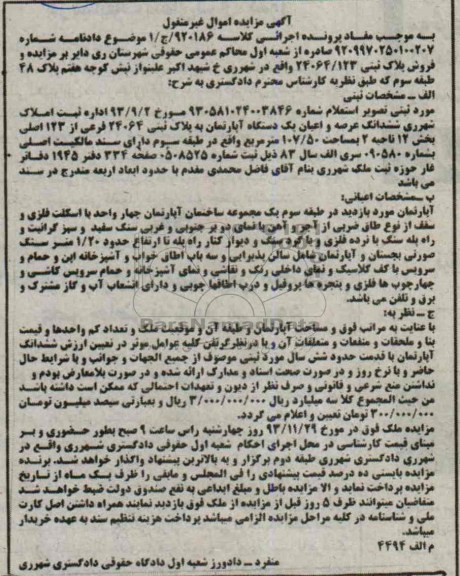 آگهی مزایده اموال غیرمنقول
به موجب مفاد پرونده اجرائی کلاسه ۹۲۰۱۸۶/ج/۱ موضوع دادنامه شماره
۹۲۰۹۹۷۰۲۵۰۱۰۰۲۰۷ صادره از شعبه اول محاکم عمومی حقوقی شهرستان ری دایر بر مزایده و
فروش پلاک ثبتی ۲۴۰۶۴/۱۲۳ واقع در شهرری خ شهید اکبر علینواز نبش کوچه هفتم پلاک ۴۸
طبقه سوم که طبق نظریه کارشناس محترم دادگستری به شرح:
الف ـ مشخصات ثبتی
مورد ثبتی تصویر استعلام شماره ۹۳۰۵۸۱۰۲۴۰۰۳۸۴۶ مورخ ۹۳/۹/۲ اداره ثبت املاک
شهرری ششدانگ عرصه و اعیان یک دستگاه آپارتمان به پلاک ثبتی ۲۴۰۶۴ فرعی از ۱۲۳ اصلی
بخش ۱۲ ناحیه ۲ بمساحت ۱۰۷/۵۰ مترمربع واقع در طبقه سوم دارای سند مالکیت اصلی
بشماره ۰۹۰۵۸۰ سری الف سال ۸۳ ذیل ثبت شماره ۰۵۰۸۵۲۵ صفحه ۳۳۴ دفتر ۱۹۴۵ دفاتر
غار حوزه ثبت ملک شهرری بنام آقای فاضل محمدی مقدم با حدود ابعاد اربعه مندرج در سند
می باشد
ب ـ مشخصات اعیانی:
آپارتمان مورد بازدید در طبقه سوم یک مجموعه ساختمان آپارتمان چهار واحد با اسکلت فلزی و
سقف از نوع طاق ضربی از آجر و آهن با نمای دو بر جنوبی و غربی سنگ سفید و سبز گرانیت و
راه پله سنگ با نرده فلزی و پاگرد سنگ و دیوار کنار راه پله تا ارتفاع حدود ۱/۲۰ متر سنگ
صورتی بجستان و آپارتمان شامل سالن پذیرایی و سه باب اطاق خواب و آشپزخانه اپن و حمام و
سرویس با کف کلاسیک و نمای داخلی رنگ و نقاشی و نمای آشپزخانه و حمام سرویس کاشی و
چهارچوب ها فلزی و پنجره ها پروفیل و درب اطاقها چوبی و دارای انشعاب آب و گاز مشترک و
برق و تلفن می باشد.
ج ـ نظریه:
با عنایت به مراتب فوق و مساحت آپارتمان و طبقه آن و موقعیت ملک و تعداد کم واحدها و قیمت
بنا و ملحقات و منفعات و متعلقات آن و با درنظرگرفتن کلیه عوامل موثر در تعیین ارزش ششدانگ
آپارتمان با قدمت حدود شش سال مورد ثبتی موصوف از جمیع الجهات و جوانب و با شرایط حال
حاضر و با نرخ روز و در صورت صحت اسناد و مدارک ارائه شده و در صورت بلامعارض بودم و
نداشتن منع شرعی و قانونی و صرف نظر از دیون و تعهدات احتمالی که ممکن است داشته باشد
من حیث المجموع کلا سه میلیارد ریال ۳/۰۰۰/۰۰۰/۰۰۰ ریال و بعبارتی سیصد میلیون تومان
۳۰۰/۰۰۰/۰۰۰ تومان تعیین و اعلام می گردد.
مزایده ملک فوق در مورخ ۹۳/۱۱/۲۹ روز چهارشنبه راس ساعت ۹ صبح بطور حضوری و بر
مبنای قیمت کارشناسی در محل اجرای احکام شعبه اول حقوقی دادگستری شهرری واقع در
شهرری دادگستری شهرری طبقه دوم برگزار و به بالاترین پیشنهاد واگذار خواهد شد. برنده
مزایده بایستی ده درصد قیمت پیشنهادی را فی المجلس و مابقی را ظرف یک ماه از تاریخ
مزایده پرداخت نماید و الا مزایده باطل و مبلغ ابداعی به نفع صندوق دولت ضبط خواهد شد
متقاضیان میتوانند ظرف ۵ روز قبل از مزایده از ملک فوق بازدید نمایند همراه داشتن اصل کارت
ملی و شناسنامه در کلیه مراحل مزایده الزامی میباشد پرداخت هزینه تنظیم سند به عهده خریدار
میباشد.
م الف ۴۴۹۴
منفرد ـ دادورز شعبه اول دادگاه حقوقی دادگستری شهرری